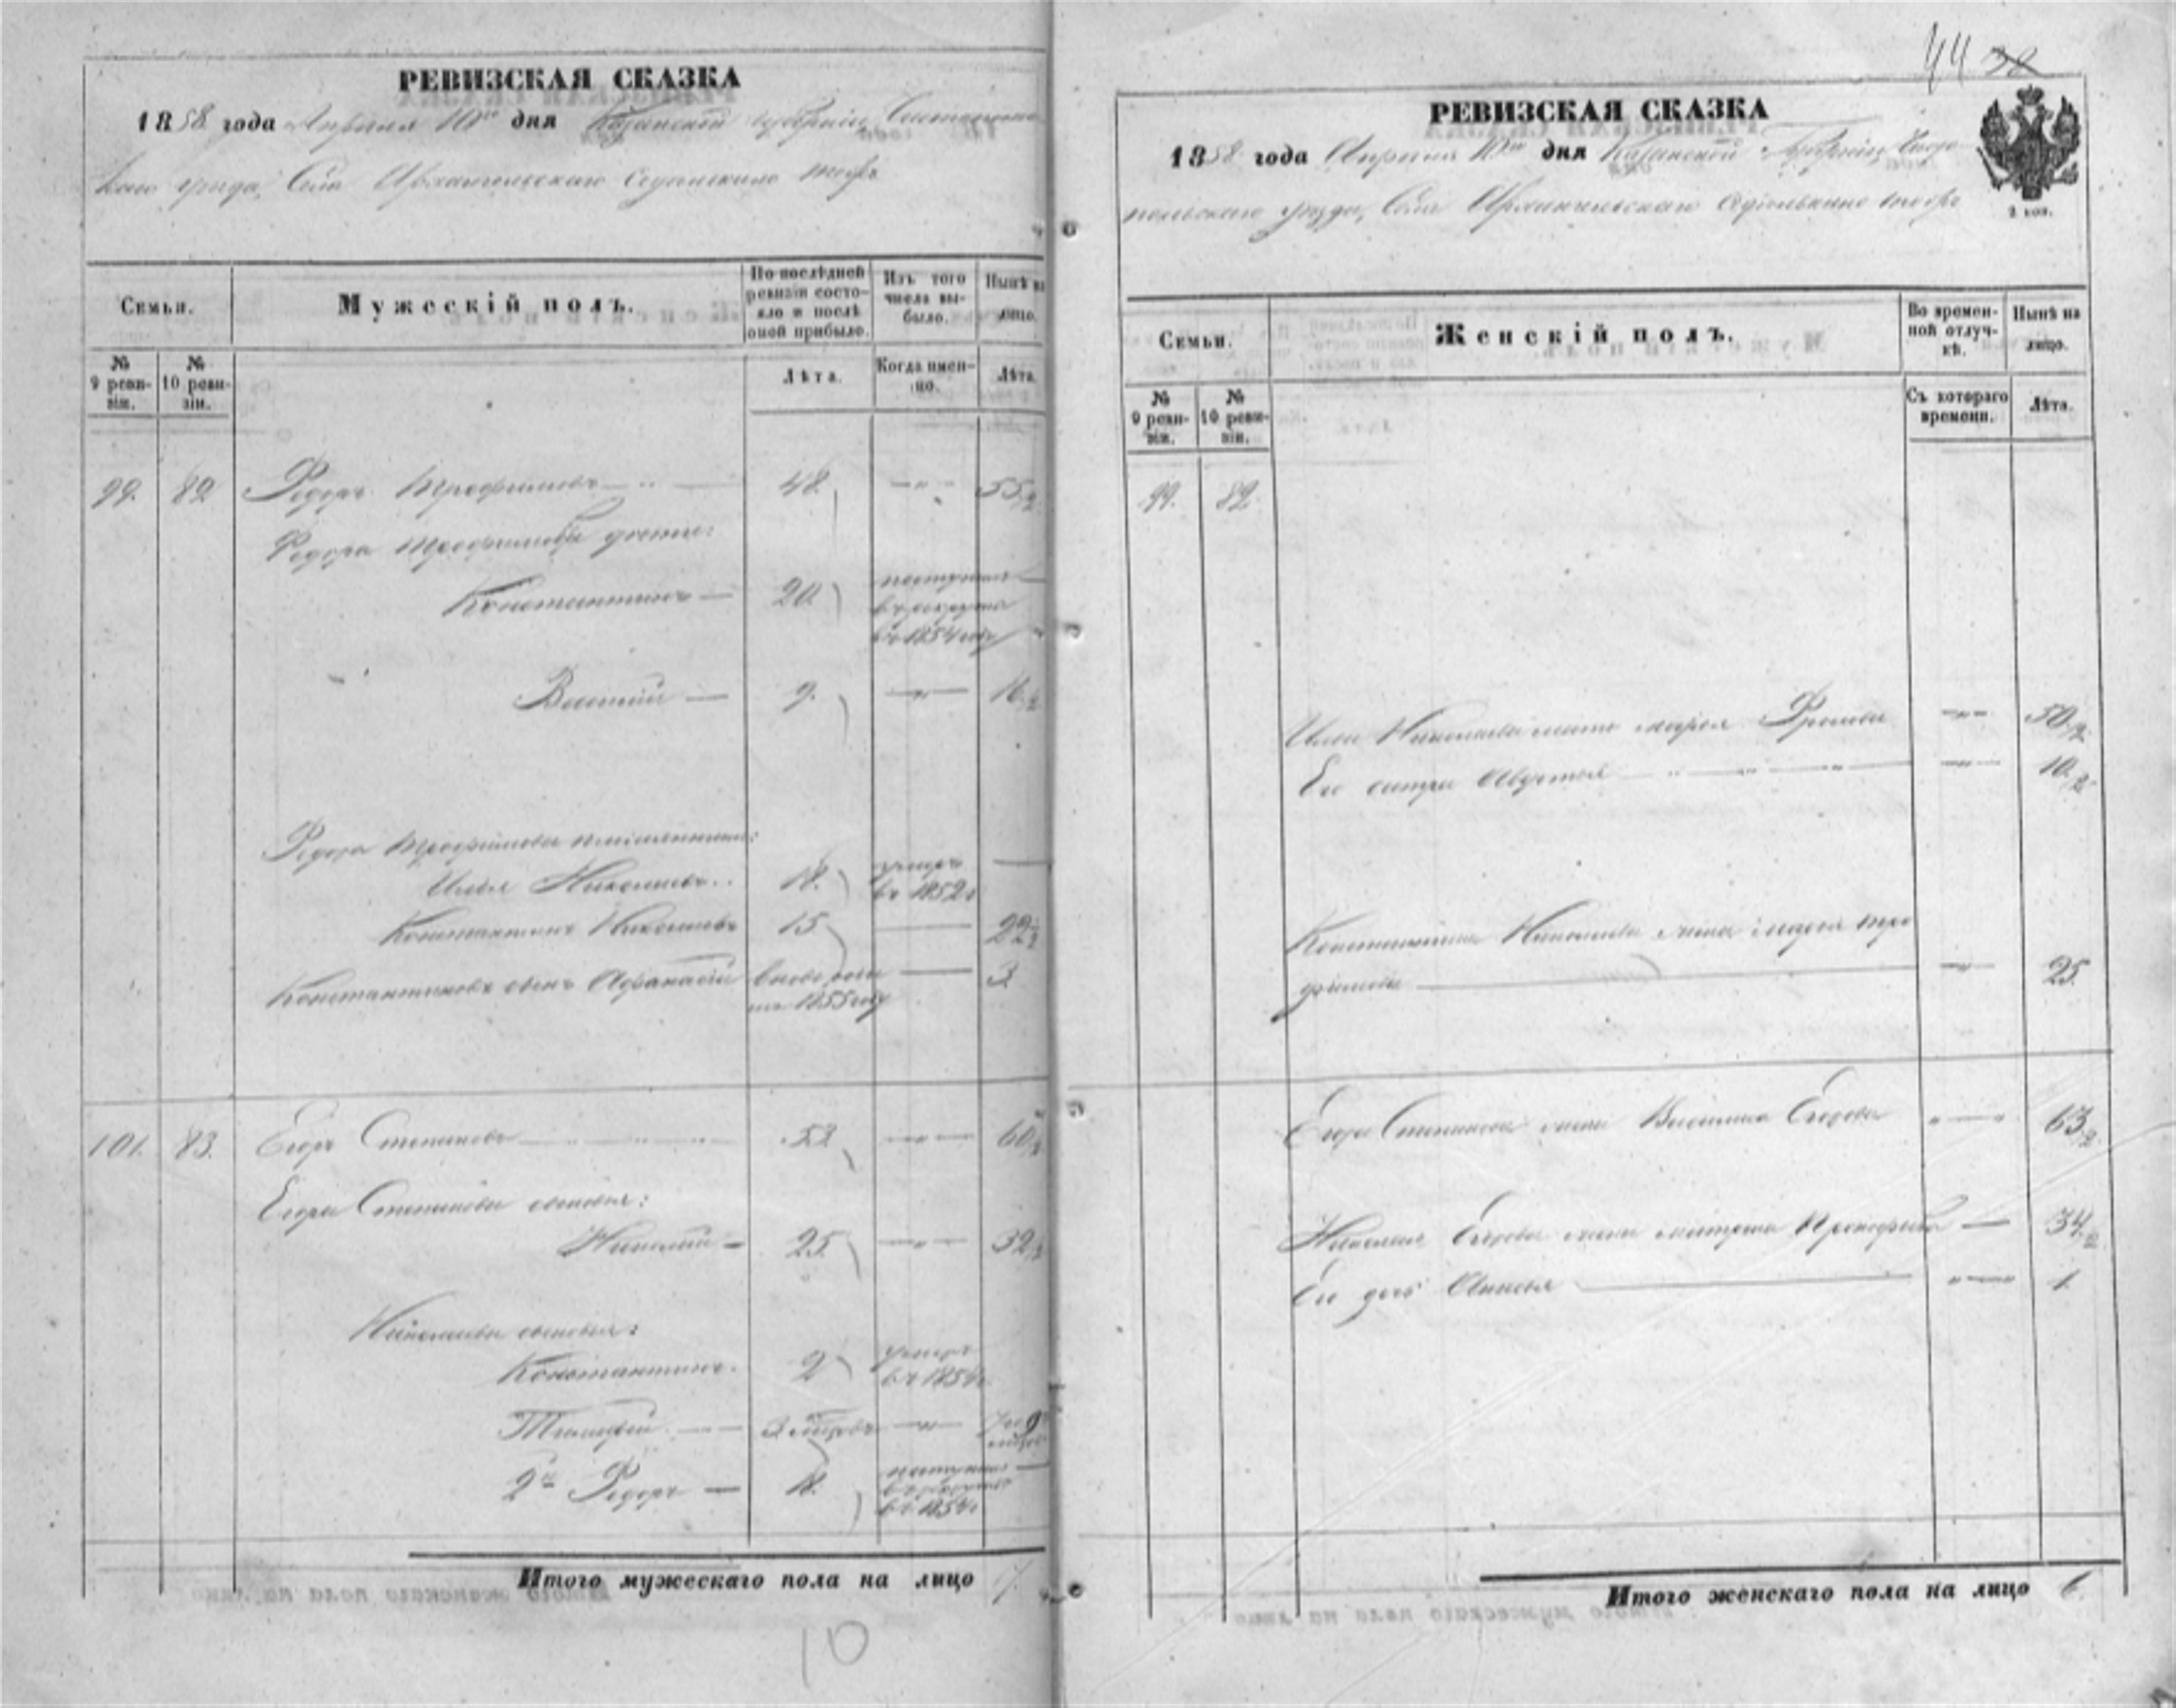 РЕВИЗСКАЯ СКАЗКА
1858 года Апреля 10го дня Казанской губернiи
каго уезда, Села Архангельскаго
Семьи.
Мужескій полъ.
По послѣдней ревизіи состояло и послѣ оной прибыло.
Изъ того числа выбыло.
Нынѣ на лицо.
№ 9 ревизіи.
№ 10 ревизіи.
Лѣта.
Когда именно.
Лѣта.
99. 82 Федоръ Трофимовъ 48. 55½
Федора Трофимова дети:
Константинъ 20. поступилъ
в рекруты
въ 1854 году
Василий 9. 16½
Федора Трофимова племянники:
Илья Николаевъ 18. умеръ
въ 1852 г
Константинъ Николаевъ 15 22½
Константиновъ сынъ Афанасій вновь рож 3
въ 1855 году
101. 83. Егоръ Степановъ 53 60½
Егора Степанова сыновья:
Николай 25. 32½
Николаевы сыновья:
Константинъ. 2 умеръ
въ 1854 г.
Тимофей 7 и 9
2й Федоръ 18. поступилъ
в рекруты
въ 1854 г
Итого мужескаго пола на лицо 7.
10
44 38
РЕВИЗСКАЯ СКАЗКА
1858 года Апреля 10го дня Казанской Губернiи Чисто
польскаго уезда, Села Архангельскаго
2 коп.
Семьи.
Женскій полъ.
Во временной отлучкѣ.
Нынѣ на лицо.
№ 9 ревизіи.
№ 10 ревизіи.
Съ котораго времени.
Лѣта.
99. 82.
Ильи Николаева мать Марья 50½
Его сестра 10½
Константина Николаева жена Марья Тро
фимова 25.
Егора Степанова жена Василиса Егорова 63½
Николая Егорова жена Матрена Прокофьева 34½
Его дочь 1.
Итого женскаго пола на лицо 6.